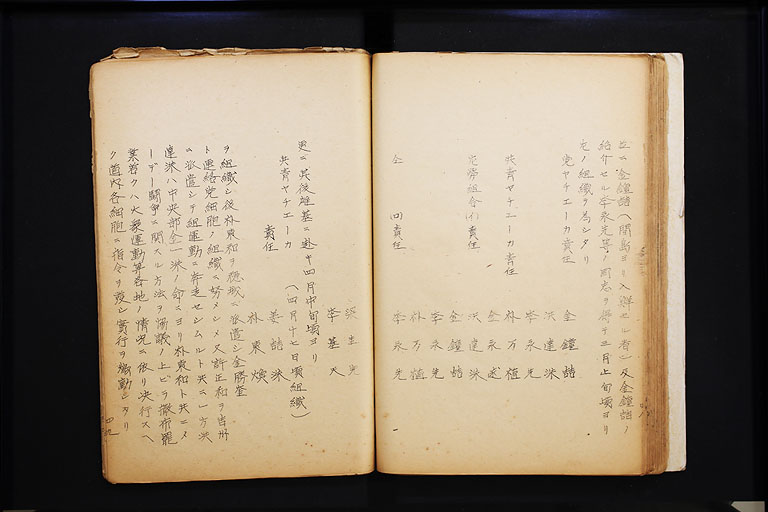 並ニ金鐘喆ヘ間島ヨリ入鮮セル者ニ及金鐘喆ノ
紹介セル李永先等ノ同志ヲ得テ三月上旬頃ヨリ
左ノ組織ヲ為シタリ
党ヤチエーカ責任 金鐘喆
洪達洙
李永先
共青ヤチエーカ責任 朴万植
金永
洪達洙
赤労組合(イ)責任 金鐘喆
李永先
朴万植
仝 (ロ)責任 李永先
更ニ其後雄基ニ赴キ四月中旬頃ヨリ
共青ヤチエーカ (四月十七日頃組織)
責任
李基天
姜喆洙
朴東煥
ヲ組織シ後朴東和ヲ穏城ニ派遣シ金勝奎
ト連絡党細胞ノ組織ニ努メシメ又許正和ヲ吉州
ニ派遣シテ組運動ニ奔走セシムルト共ニ一方洪
達洙ハ中央部仝一派ノ命ニヨリ朴東和ト共ニメ
ーデー闘争ニ関スル方法ヲ協議ノ上ビラ撒布罷
業若クハ大衆運動等各地ノ情況ニ依リ決行スヘ
ク道内各細胞ニ指令ヲ発シ実行ヲ煽動シタリ